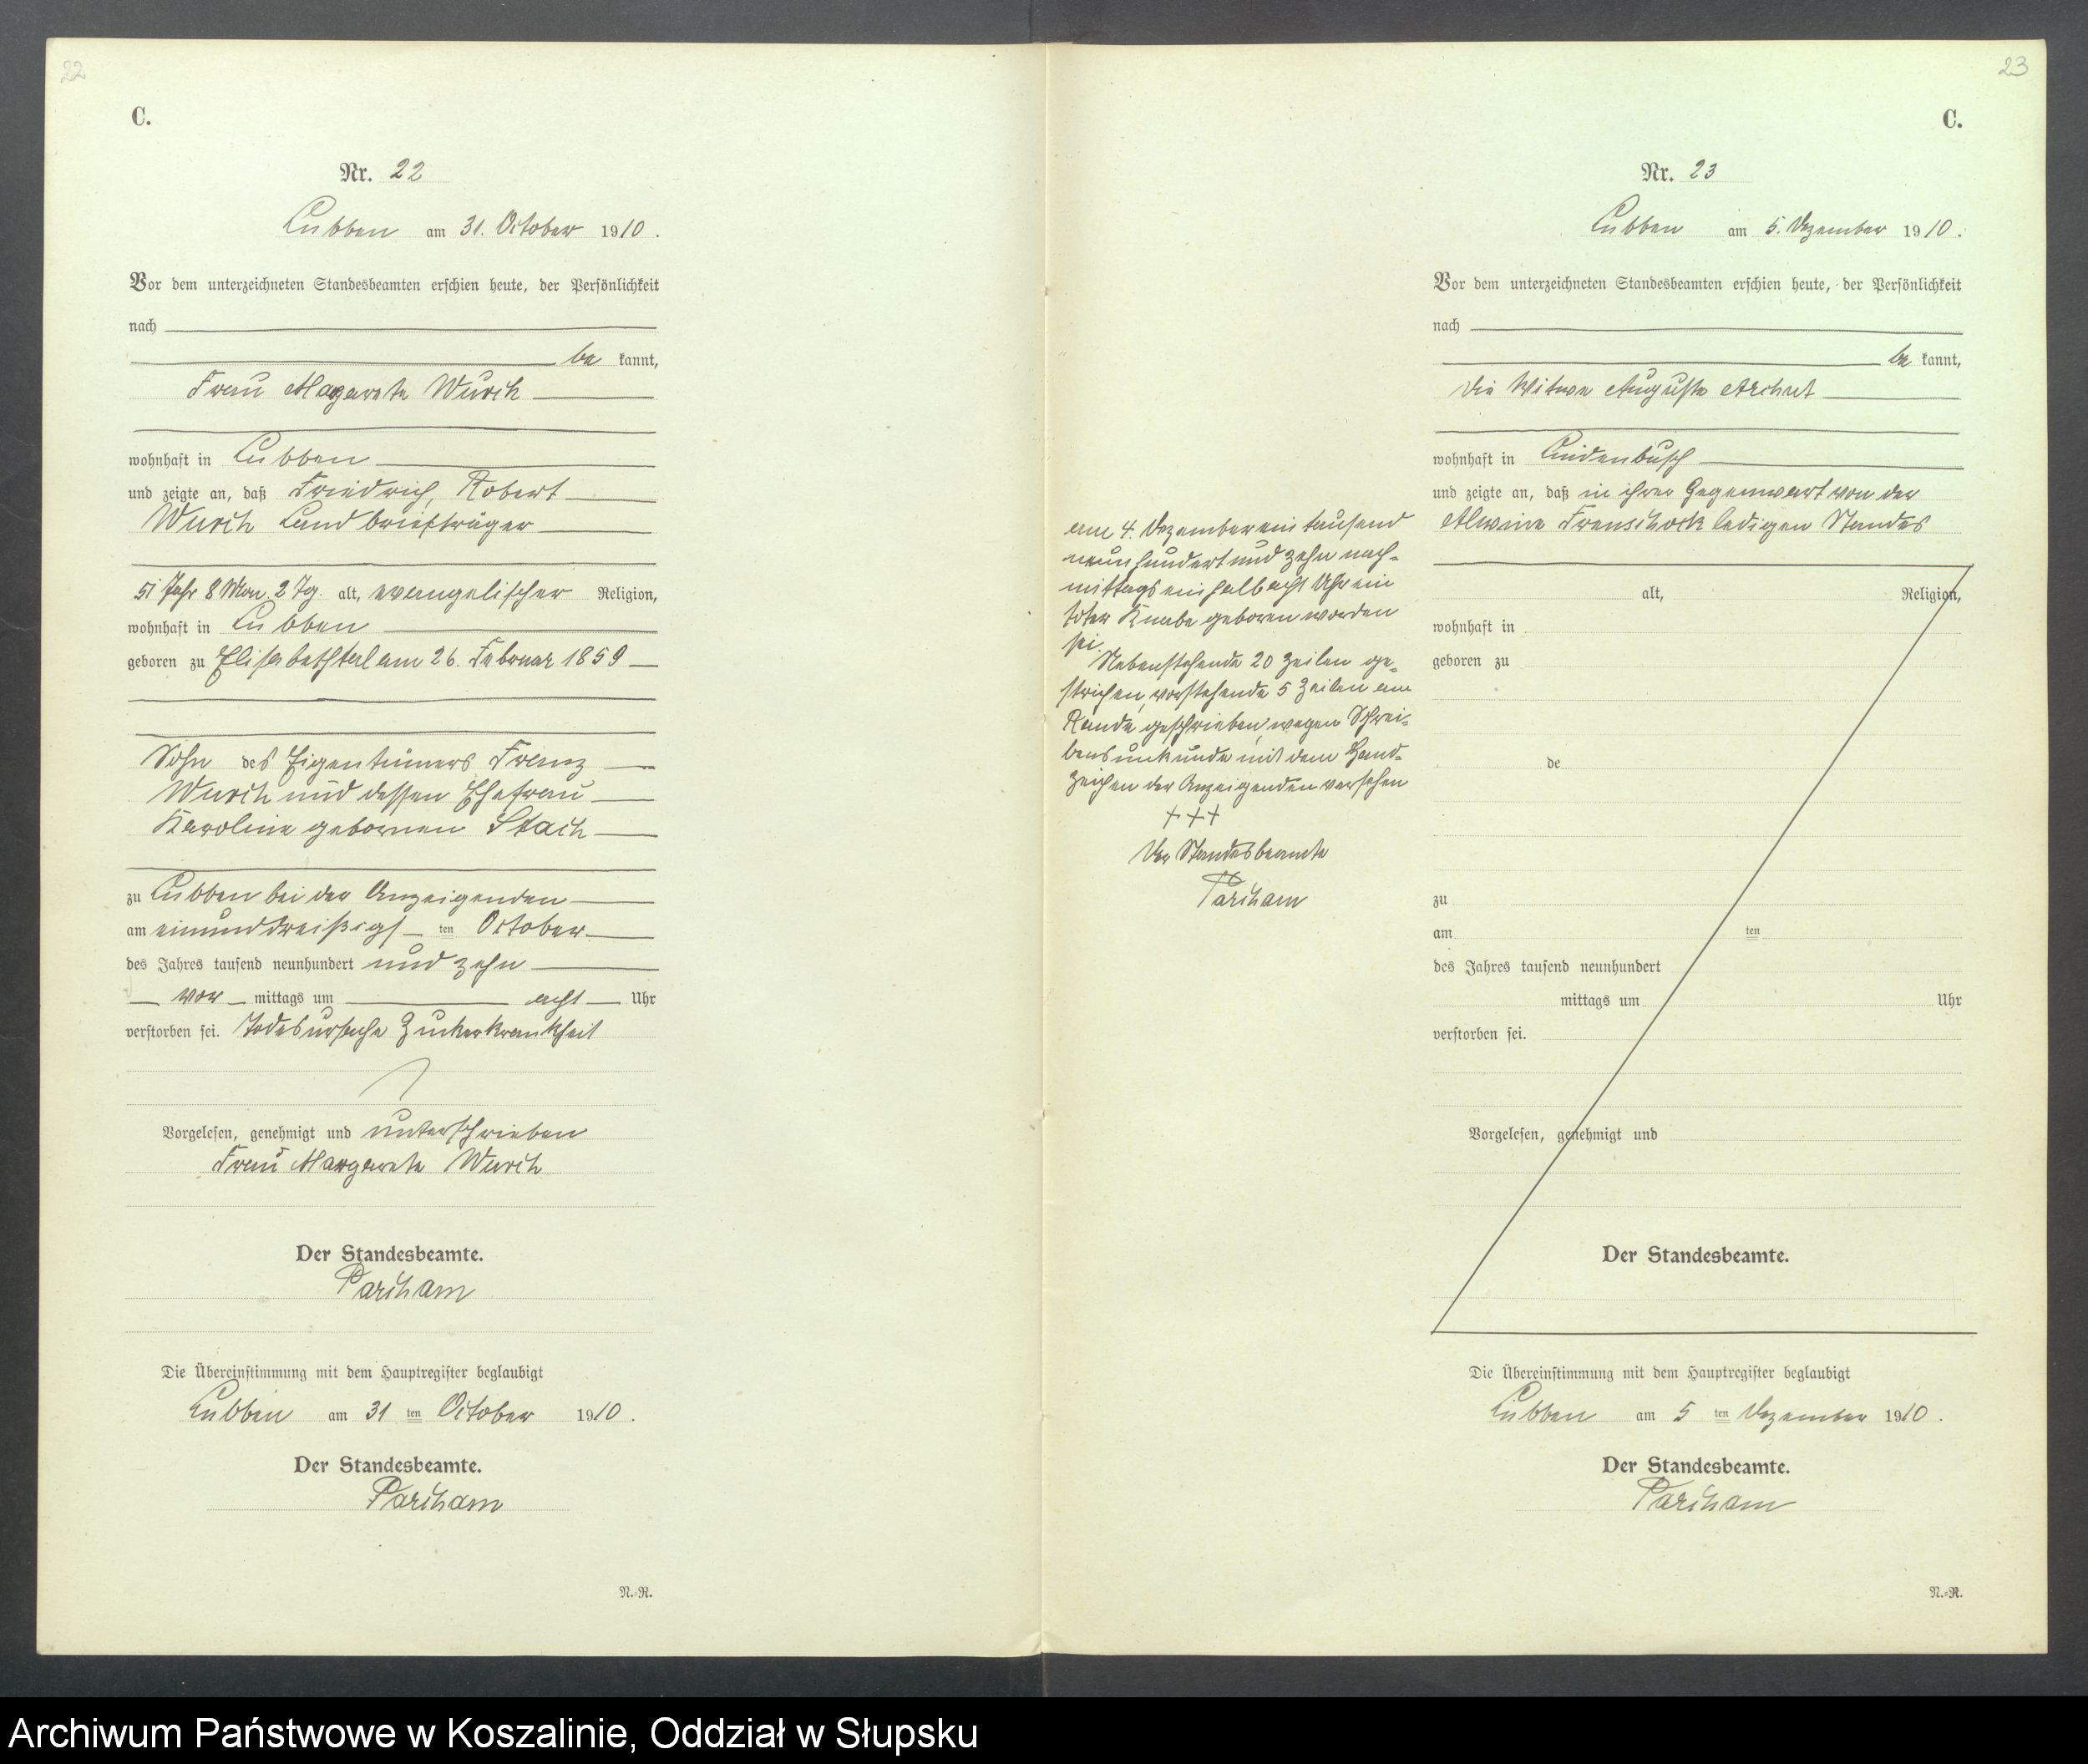 22
C.
Nr. 22
Lubben am 31. October 1910.
Vor dem unterzeichneten Standesbeamten erschien heute, der Persönlichkeit
nach
be kannt,
Frau Margarete Wurch
wohnhaft in Lubben
und zeigte an, daß Friedrich, Robert
Wurch Landbriefträger
51 Jahr 8 Mon. 2 Tg. alt, evangelischer Religion,
wohnhaft in Lubben
geboren zu Elisabethtal am 26. Februar 1859
Sohn des Eigentümers Franz
Wurch und dessen Ehefrau
Karoline gebornen Stach
zu Lubben bei der Anzeigenden
am einunddreißigst ten October
des Jahres tausend neunhundert und zehn
vor mittags um acht Uhr
verstorben sei. Todesursache Zuckerkrankheit
Vorgelesen, genehmigt und unterschrieben
Frau Margarete Wurch
Der Standesbeamte.
Parcham
Die Übereinstimmung mit dem Hauptregister beglaubigt
Lubben am 31 ten October 1910.
Der Standesbeamte.
Parcham
N.-R.
23
C.
Nr. 23
Lubben am 5. Dezember 1910.
Vor dem unterzeichneten Standesbeamten erschien heute, der Persönlichkeit
nach
be kannt,
die Witwe Auguste
wohnhaft in Lindenbusch
und zeigte an, daß in ihrer Gegenwart von der
Alwine ledigen Standes
am 4. Dezember ein tausend
neunhundert und zehn nach-
mittags ein halb acht Uhr ein
toter Knabe geboren worden
sei.
Nebenstehende 20 Zeilen ge-
strichen, vorstehende 5 Zeilen am
Rande geschrieben, wegen Schrei-
bensunkunde mit dem Hand-
zeichen der Anzeigenden versehen
+++
Der Standesbeamte
Parcham
alt, Religion,
wohnhaft in
geboren zu
de
zu
am ten
des Jahres tausend neunhundert
mittags um Uhr
verstorben sei.
Vorgelesen, genehmigt und
Der Standesbeamte.
Die Übereinstimmung mit dem Hauptregister beglaubigt
Lubben am 5 ten Dezember 1910.
Der Standesbeamte.
Parcham
N.-R.
Archiwum Państwowe w Koszalinie, Oddział w Słupsku